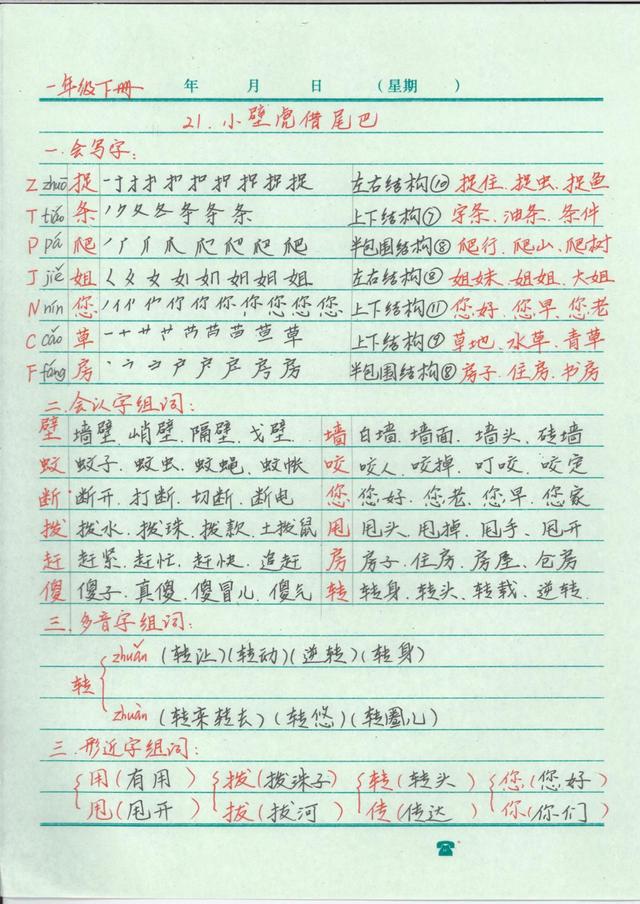 一年级下册 年 月 日 (星期 )
21.小壁虎借尾巴
一.会写字:
Z zhuō 捉 左右结构⑩ 捉住、捉虫、捉鱼
T tiáo 条 丿 夂 夂 冬 条 条 条 上下结构⑦ 字条、油条、条件
P pá 爬 半包围结构⑧ 爬行、爬山、爬树
J jiě 姐 左右结构⑧ 姐妹、姐姐、大姐
N nín 您 上下结构⑪ 您好、您早、您老
C cǎo 草 上下结构⑨ 草地、水草、青草
F fáng 房 半包围结构⑧ 房子、住房、书房
二.会认字组词:
壁 墙壁、峭壁、隔壁、戈壁 墙 白墙、墙面、墙头、砖墙
蚊 蚊子、蚊虫、蚊蝇、蚊帐 咬 咬人、咬掉、叮咬、咬定
断 断开、打断、切断、断电 您 您好、您老、您早、您家
拨 拨水、拨珠、拨款、土拨鼠 甩 甩头、甩掉、甩手、甩开
赶 赶紧、赶忙、赶快、追赶 房 房子、住房、房屋、仓房
傻 傻子、真傻、傻冒儿、傻气 转 转身、转头、转载、逆转
三.多音字组词:
zhuǎn (转让)(转动)(逆转)(转身)
转
zhuàn (转来转去)(转悠)(转圈儿)
三.形近字组词:
用(有用) 拨(拨珠子) 转(转头) 您(您好)
甩(甩开) 拔(拔河) 传(传达) 你(你们)